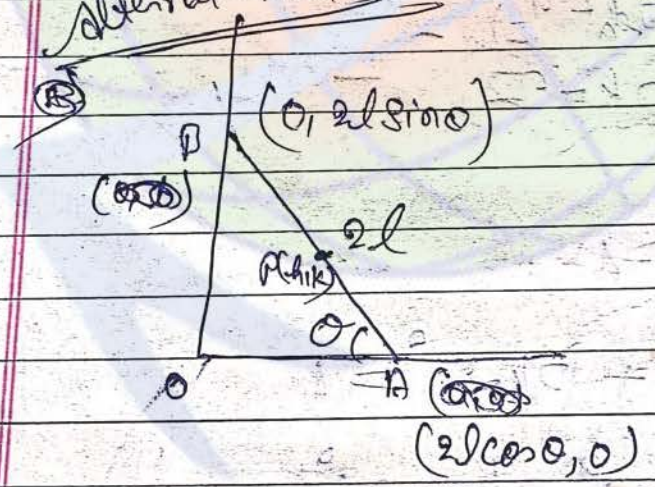 B
(0, 2l sinθ)
2l
P(h,k)
θ
O
A
(2l cosθ, 0)